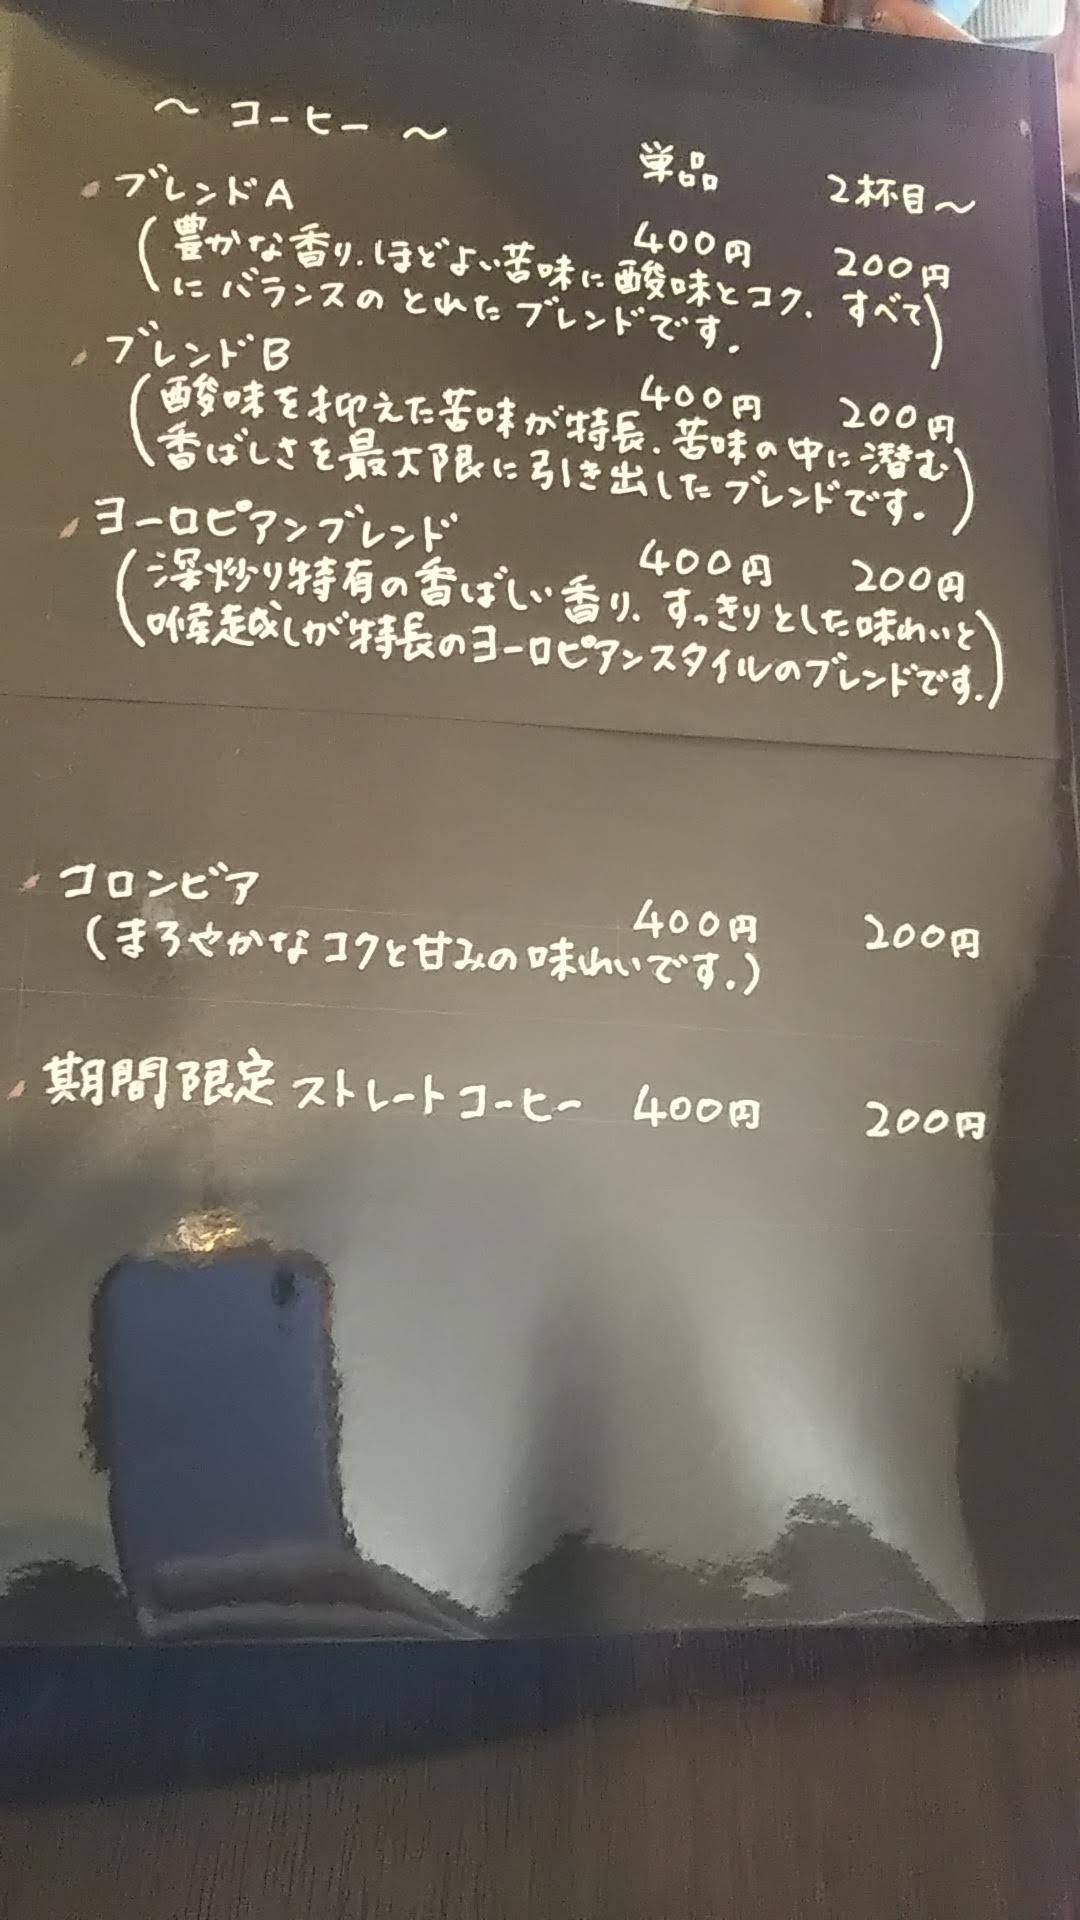 ～ コーヒー ～
単品 2杯目～
ブレンドA 400円 200円
(豊かな香り、ほどよい苦味に酸味とコク、すべて
にバランスのとれたブレンドです。)
ブレンドB 400円 200円
(酸味を抑えた苦味が特長、苦味の中に潜む
香ばしさを最大限に引き出したブレンドです。)
ヨーロピアンブレンド 400円 200円
(深炒り特有の香ばしい香り、すっきりとした味わいと
喉越しが特長のヨーロピアンスタイルのブレンドです。)
コロンビア 400円 200円
(まろやかなコクと甘みの味わいです。)
期間限定 ストレートコーヒー 400円 200円